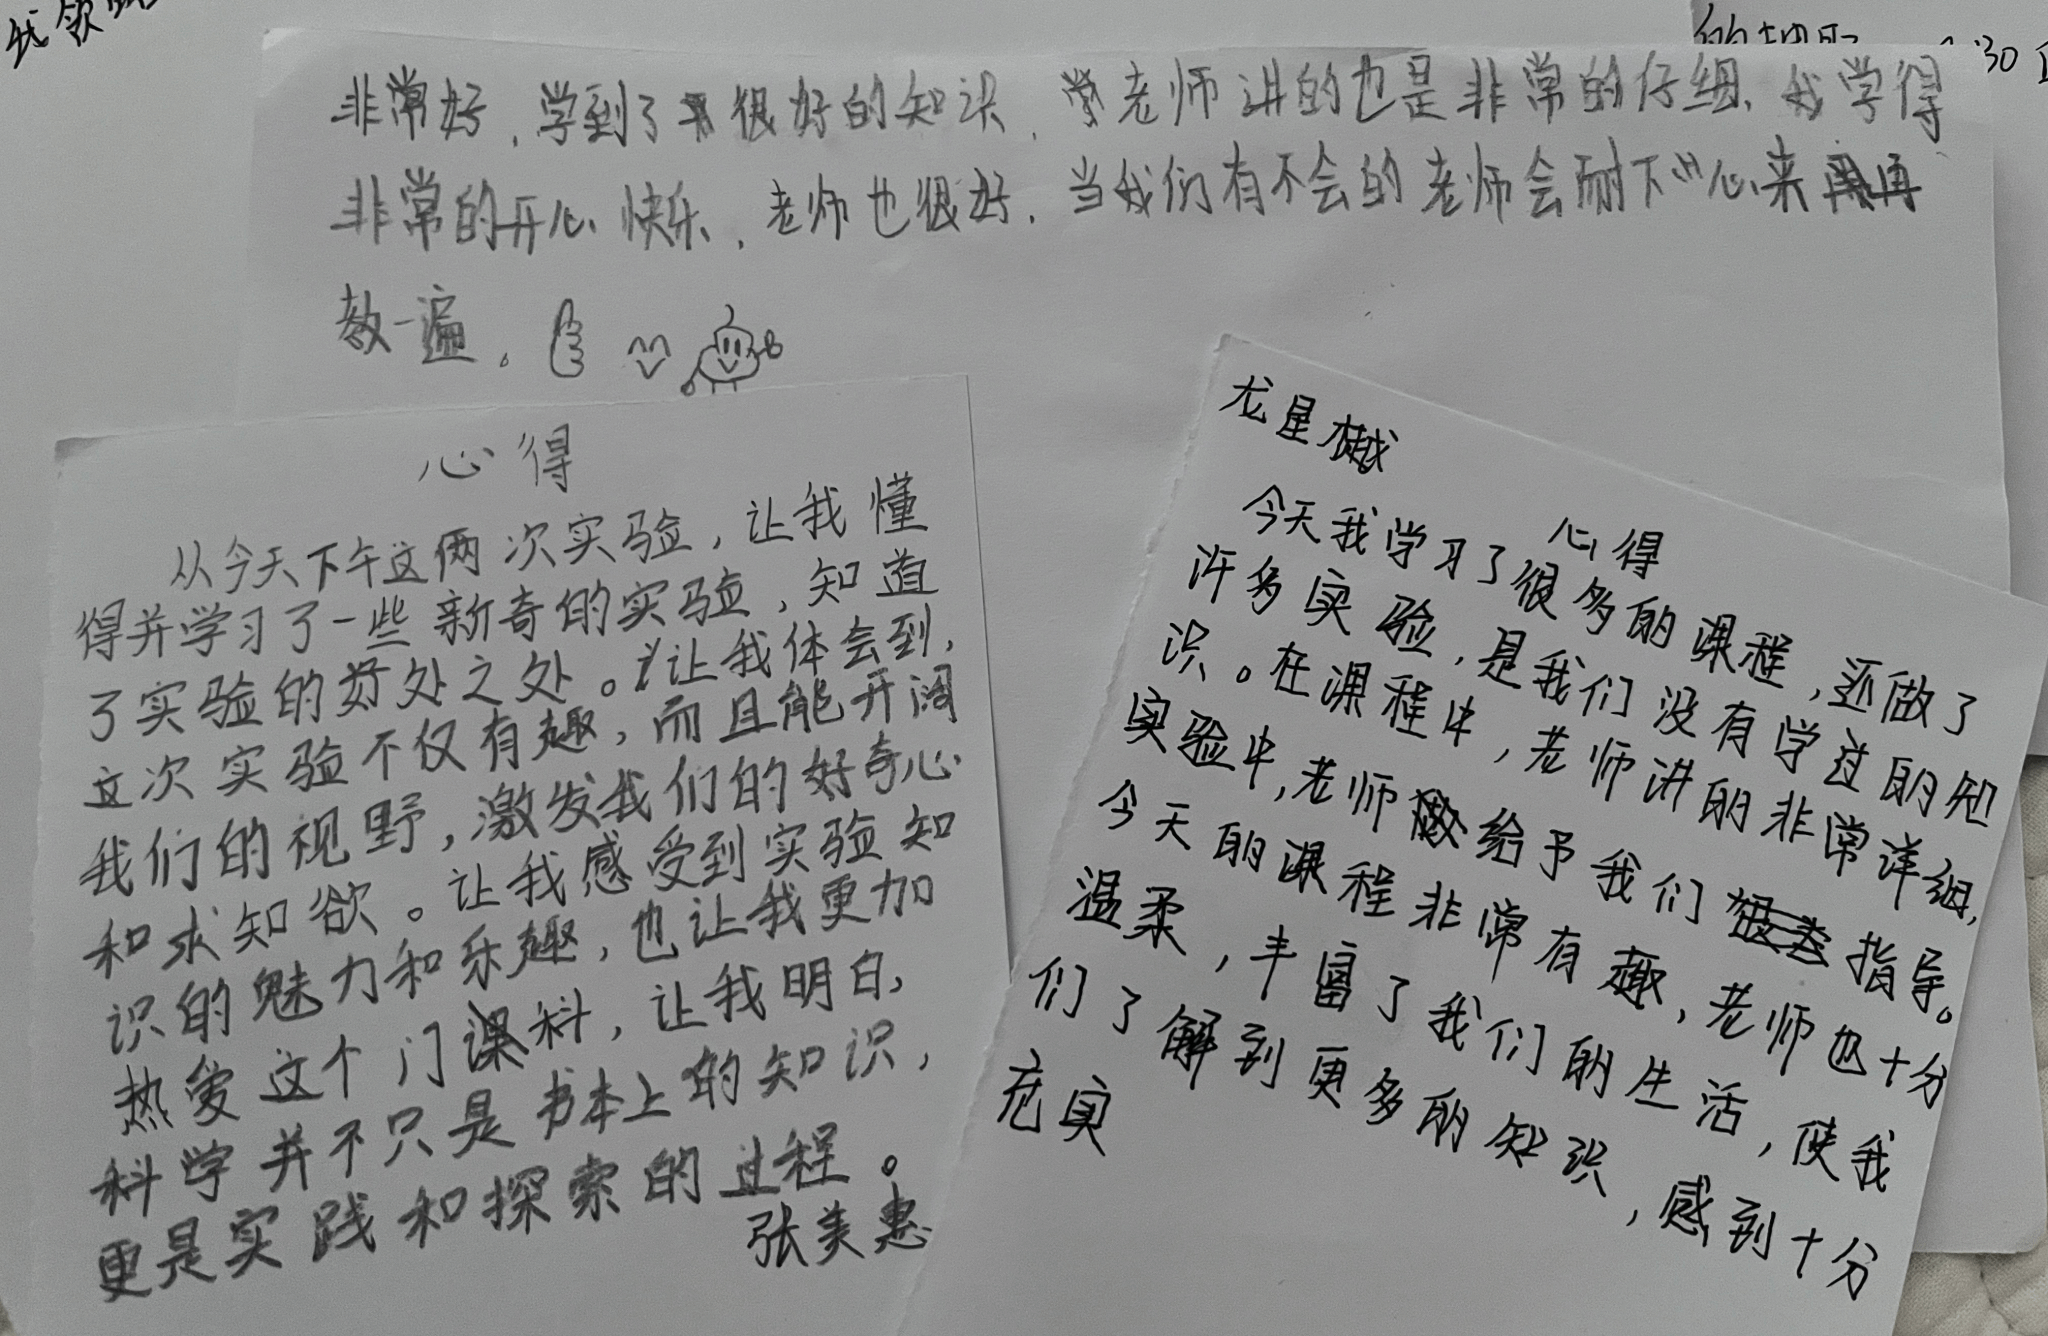 非常好，学到了很好的知识，老师讲的也是非常的仔细，我学得
非常的开心快乐，老师也很好，当我们有不会的老师会耐下心来再
教一遍。
心得
从今天下午这俩次实验，让我懂
得并学习了一些新奇的实验，知道
了实验的好处之处。让我体会到，
这次实验不仅有趣，而且能开阔
我们的视野，激发我们的好奇心
和求知欲。让我感受到实验知
识的魅力和乐趣，也让我更加
热爱这个门科，让我明白，
科学并不只是书本上的知识，
更是实践和探索的过程。
张美惠
龙星樾
心得
今天我学习了很多的课程，还做了
许多实验，是我们没有学过的知
识。在课程中，老师讲的非常详细，
实验中，老师给予我们指导。
今天的课程非常有趣，老师也十分
温柔，丰富了我们的生活，使我
们了解到更多的知识，感到十分
充实